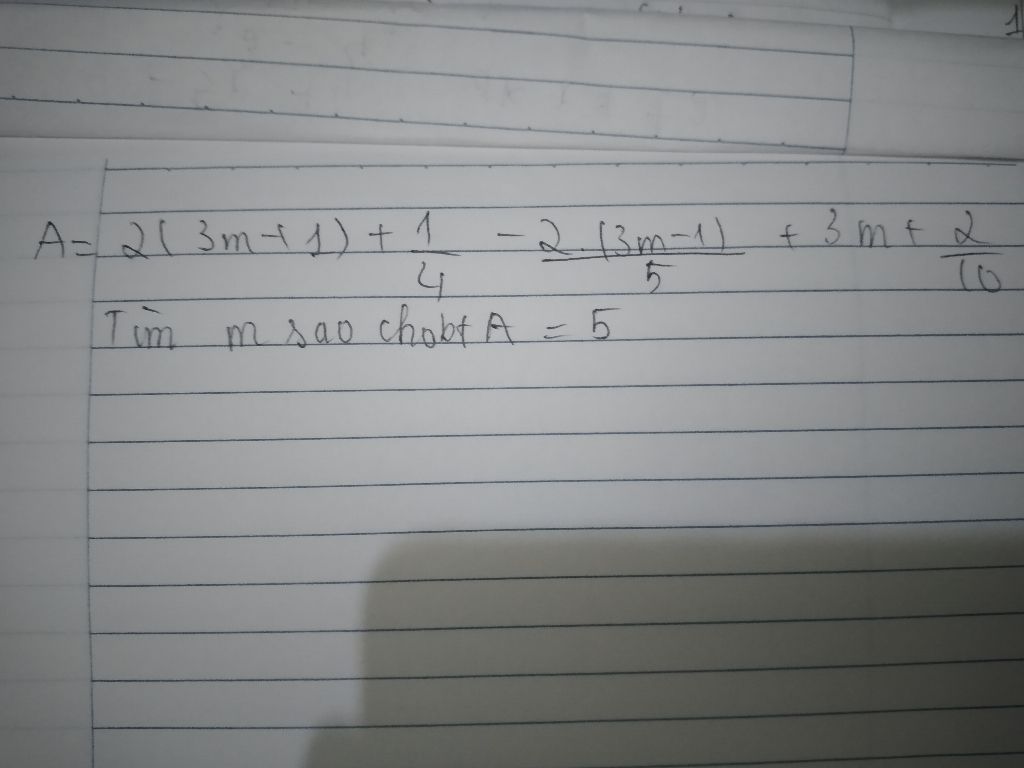 A = 2(3m+1) + 1/4 - 2.(3m-1)/5 + 3m + 2/10
Tìm m sao chobt A = 5